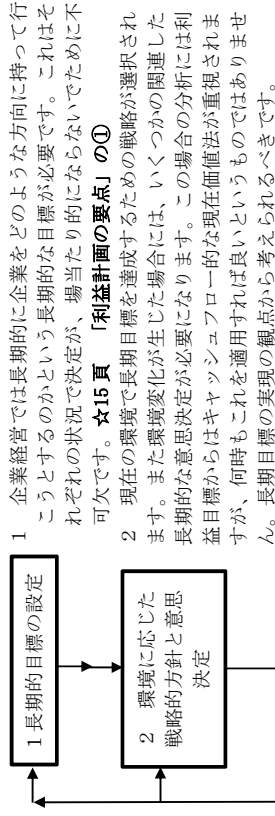 1 長期的目標の設定
2　環境に応じた
戦略的方針と意思
決定
1　企業経営では長期的に企業をどのような方向に持って行
こうとするのかという長期的な目標が必要です。これはそ
れぞれの状況で決定が、場当たり的にならないでために不
可欠です。☆15 頁　「利益計画の要点」の①
2　現在の環境で長期目標を達成するための戦略が選択され
ます。また環境変化が生じた場合には、いくつかの関連した
長期的な意思決定が必要になります。この場合の分析には利
益目標からはキャッシュフロー的な現在価値法が重視されま
すが、何時もこれを適用すれば良いというものではありませ
ん。長期目標の実現の観点から考えられるべきです。